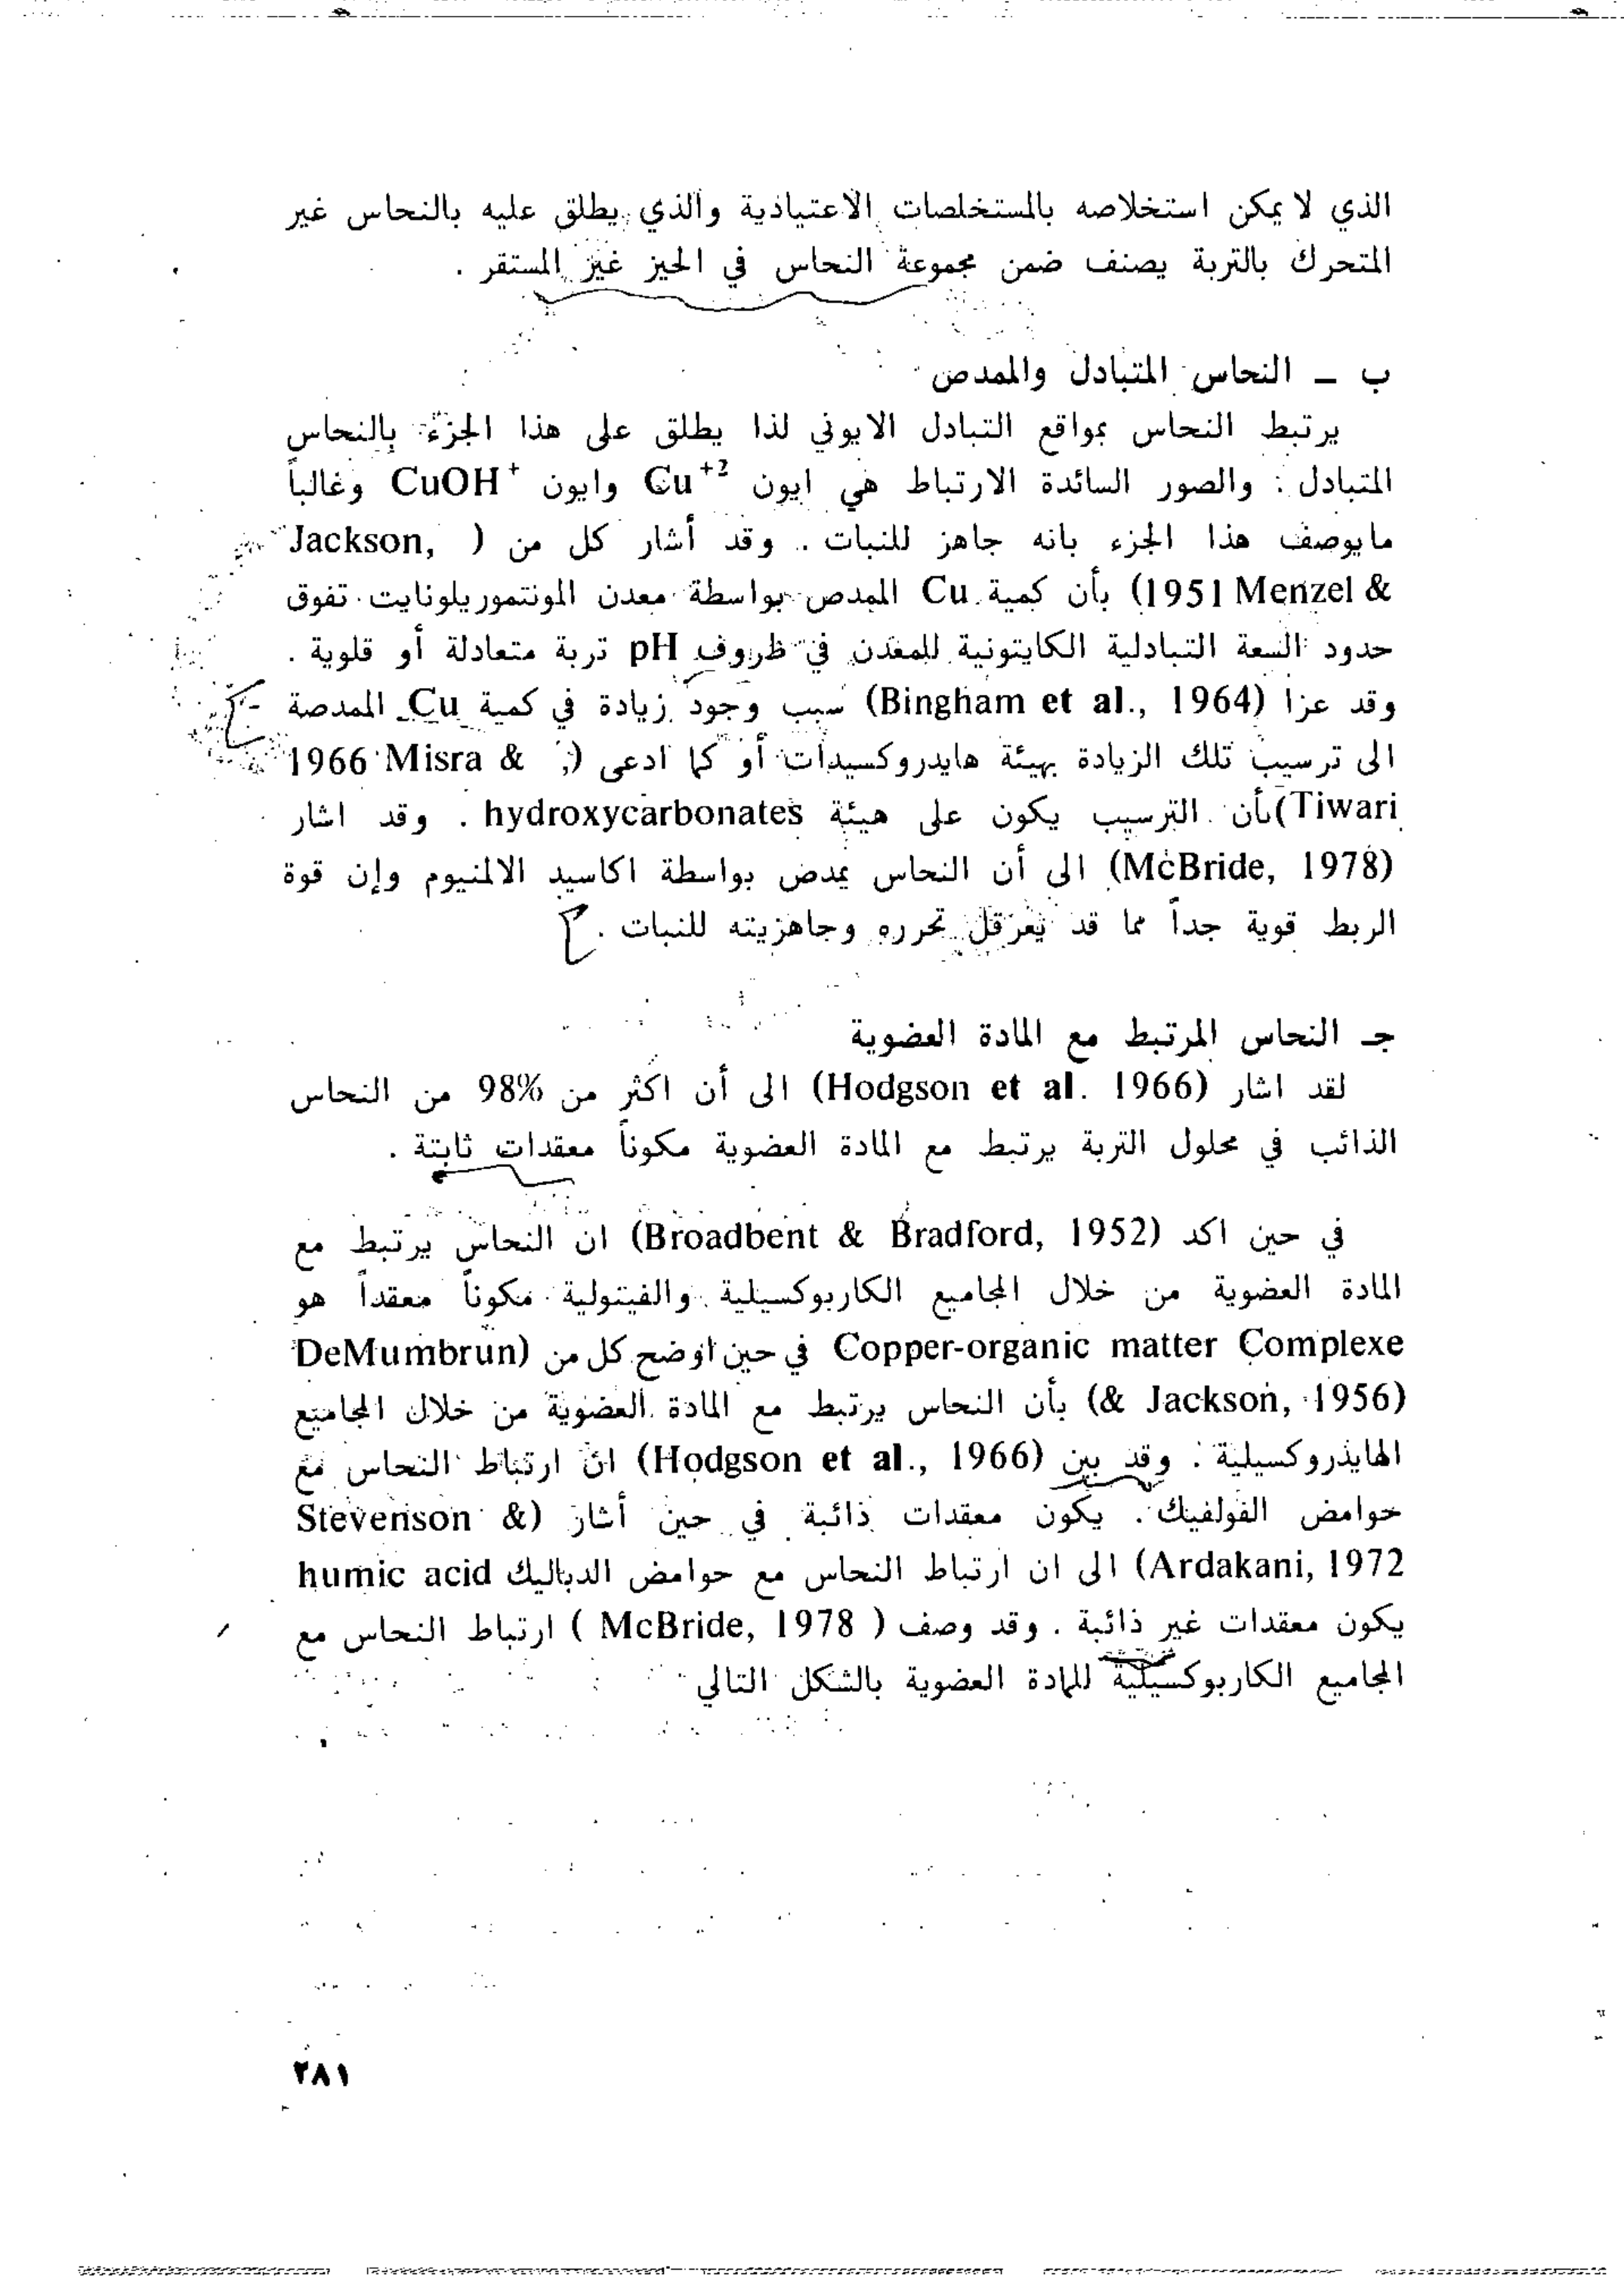 الذي لا يمكن استخلاصه بالمستخلصات الاعتيادية والذي يطلق عليه بالنحاس غير
المتحرك بالتربة يصنف ضمن مجموعة النحاس في الحيز غير المستقر .
ب ــ النحاس المتبادل والممدص
يرتبط النحاس بمواقع التبادل الايوني لذا يطلق على هذا الجزء بالنحاس
المتبادل . والصور السائدة الارتباط هي ايون Cu⁺² وايون CuOH⁺ وغالباً
مايوصف هذا الجزء بانه جاهز للنبات . وقد أشار كل من ( Jackson,
1951 Menzel &) بأن كمية Cu الممدص بواسطة معدن المونتموريلونايت تفوق
حدود السعة التبادلية الكايتونية للمعدن في ظروف pH تربة متعادلة أو قلوية .
وقد عزا (Bingham et al., 1964) سبب وجود زيادة في كمية Cu الممدصة
الى ترسيب تلك الزيادة بهيئة هايدروكسيدات أو كما ادعى (; 1966 Misra &
Tiwari) بأن الترسيب يكون على هيئة hydroxycarbonates . وقد اشار
(McBride, 1978) الى أن النحاس يمدص بواسطة اكاسيد الالمنيوم وإن قوة
الربط قوية جداً مما قد يعرقل تحرره وجاهزيته للنبات .
جـ النحاس المرتبط مع المادة العضوية
لقد اشار (Hodgson et al. 1966) الى أن اكثر من 98% من النحاس
الذائب في محلول التربة يرتبط مع المادة العضوية مكوناً معقدات ثابتة .
في حين اكد (Broadbent & Bradford, 1952) ان النحاس يرتبط مع
المادة العضوية من خلال المجاميع الكاربوكسيلية والفينولية مكوناً معقداً هو
Copper-organic matter Complexe في حين اوضح كل من (DeMumbrun
& Jackson, 1956) بأن النحاس يرتبط مع المادة العضوية من خلال المجاميع
الهايذروكسيلية . وقد بين (Hodgson et al., 1966) ان ارتباط النحاس مع
حوامض الفولفيك . يكون معقدات ذائبة في حين أشار (Stevenson &
Ardakani, 1972) الى ان ارتباط النحاس مع حوامض الدباليك humic acid
يكون معقدات غير ذائبة . وقد وصف ( McBride, 1978 ) ارتباط النحاس مع
المجاميع الكاربوكسيلية للمادة العضوية بالشكل التالي
٢٨١